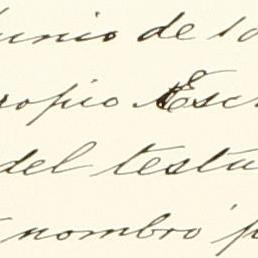 Junio de 18
ropio Esc
del testu
nombro p